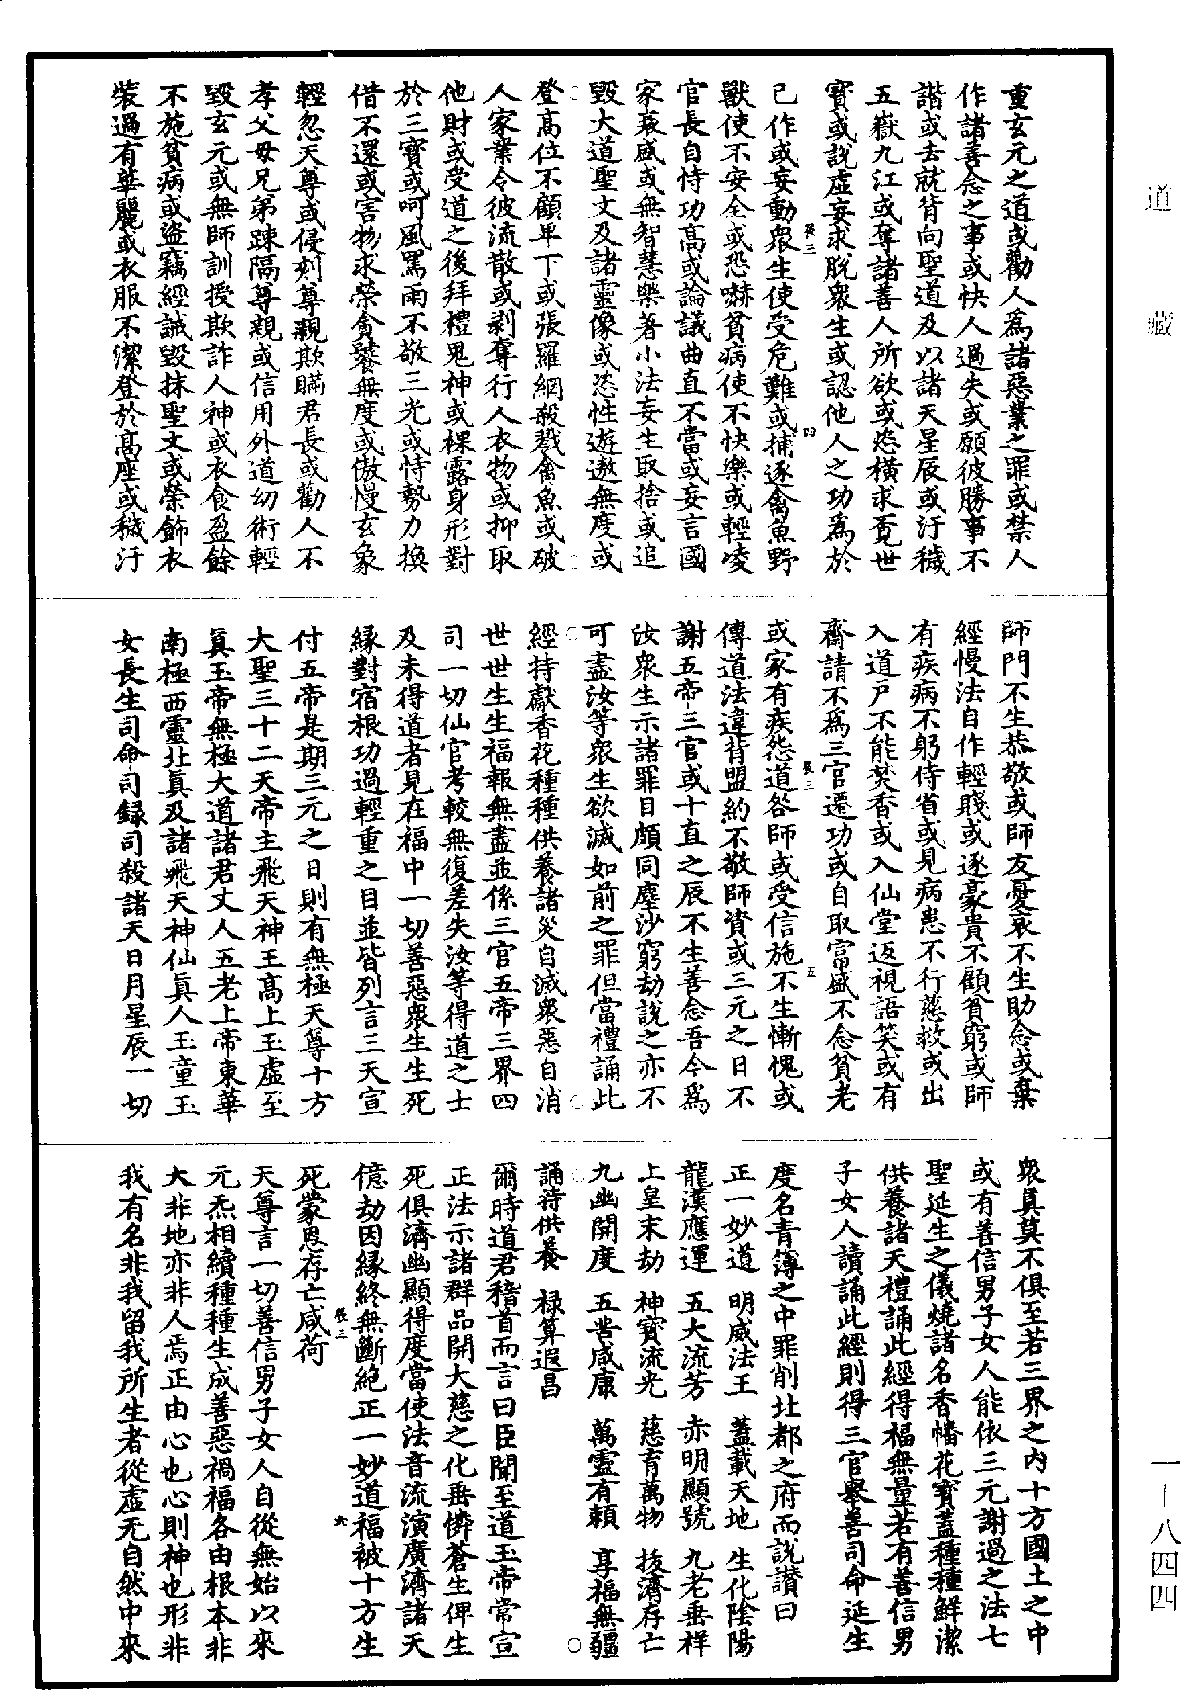 道藏
一—八四四
重玄元之道或勸人爲諸惡業之罪或禁人
作諸善念之事或快人過失或願彼勝事不
諧或去就背向聖道及以諸天星辰或汙穢
五嶽九江或奪諸善人所欲或恣橫求覔世
寶或說虛妄求脫衆生或認他人之功爲於
己作或妄動衆生使受危難或捕逐禽魚野
獸使不安全或恐嚇貧病使不快樂或輕凌
官長自恃功高或論議曲直不當或妄言國
家衰盛或無智慧樂著小法妄生取捨或追
毀大道聖文及諸靈像或恣性遊遨無度或
登高位不顧卑下或張羅網殺戮禽魚或破
人家業令彼流散或剥奪行人衣物或抑取
他財或受道之後拜禮鬼神或裸露身形對
於三寶或呵風罵雨不敬三光或恃勢力換
借不還或害物求榮貪饕無度或傲慢玄象
輕忽天尊或侵刻尊親欺瞞君長或勸人不
孝父母兄弟踈隔尊親或信用外道幻術輕
毀玄元或無師訓授欺詐人神或衣食盈餘
不施貧病或盜竊經誡毀抹聖文或榮飾衣
裝過有華麗或衣服不潔登於高座或穢汙
師門不生恭敬或師友憂哀不生助念或棄
經慢法自作輕賤或逐豪貴不顧貧窮或師
有疾病不躬侍省或見病患不行慈救或出
入道戶不能焚香或入仙堂返視語笑或有
齋請不爲三官遷功或自取富盛不念貧老
或家有疾怨道咎師或受信施不生慚愧或
傳道法違背盟約不敬師資或三元之日不
謝五帝三官或十直之辰不生善念吾今爲
汝衆生示諸罪目頗同塵沙窮劫說之亦不
可盡汝等衆生欲滅如前之罪但當禮誦此
經持獻香花種種供養諸災自滅衆惡自消
世世生生福報無盡並係三官五帝三界四
司一切仙官考較無復差失汝等得道之士
及未得道者見在福中一切善惡衆生生死
緣對宿根功過輕重之目並皆列言三天宣
付五帝是期三元之日則有無極天尊十方
大聖三十二天帝主飛天神王高上玉虛至
眞玉帝無極大道諸君丈人五老上帝東華
南極西靈北眞及諸飛天神仙眞人玉童玉
女長生司命司錄司殺諸天日月星辰一切
衆眞莫不俱至若三界之内十方國土之中
或有善信男子女人能依三元謝過之法七
聖延生之儀燒諸名香幡花寶蓋種種鮮潔
供養諸天禮誦此經得福無量若有善信男
子女人讀誦此經則得三官舉善司命延生
度名青簿之中罪削北都之府而說讚曰
正一妙道　明威法王　蓋載天地　生化陰陽
龍漢應運　五大流芳　赤明顯號　九老垂祥
上皇末劫　神寶流光　慈育萬物　拔濟存亡
九幽開度　五苦咸康　萬靈有賴　享福無疆
誦持供養　禄算遐昌
爾時道君稽首而言曰臣聞至道玉帝常宣
正法示諸群品開大慈之化垂憐蒼生俾生
死俱濟幽顯得度當使法音流演廣濟諸天
億劫因緣終無斷絕正一妙道福被十方生
死蒙恩存亡咸荷
天尊言一切善信男子女人自從無始以來
元炁相續種種生成善惡禍福各由根本非
大非地亦非人焉正由心也心則神也形非
我有名非我留我所生者從虛无自然中來
張三
四
張三
五
張三
六